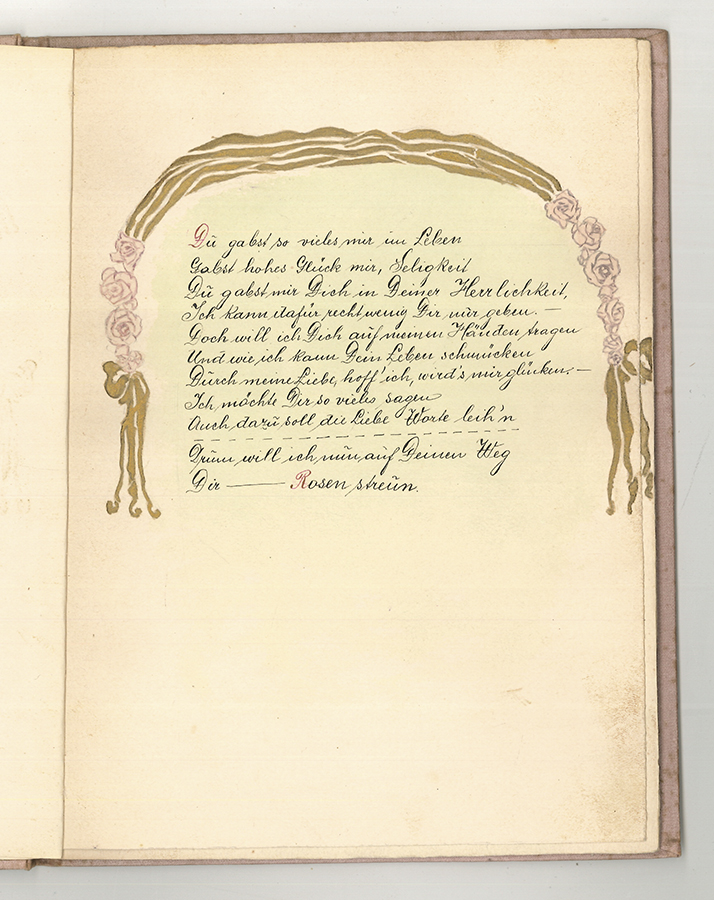 Du gabst so vieles mir im Leben
Gabst hohes Glück mir, Seligkeit
Du gabst mir Dich in Deiner Herrlichkeit,
Ich kann dafür recht wenig Dir nur geben. —
Doch will ich Dich auf meinen Händen tragen
Und wie ich kann Dein Leben schmücken
Durch meine Liebe, hoff' ich, wird's mir glücken. —
Ich möchte Dir so vieles sagen
Auch dazu soll die Liebe Worte leih'n
Drum will ich nun auf Deinen Weg
Dir —— Rosen streun.